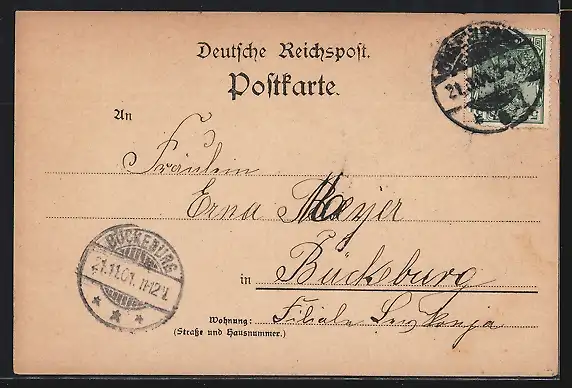 Deutsche Reichspost.
Postkarte.
An
Fräulein
Erna Meyer
in Bückeburg
Wohnung: Filiale
(Straße und Hausnummer.)
BÜCKEBURG
21.11.01. 11-12 V.